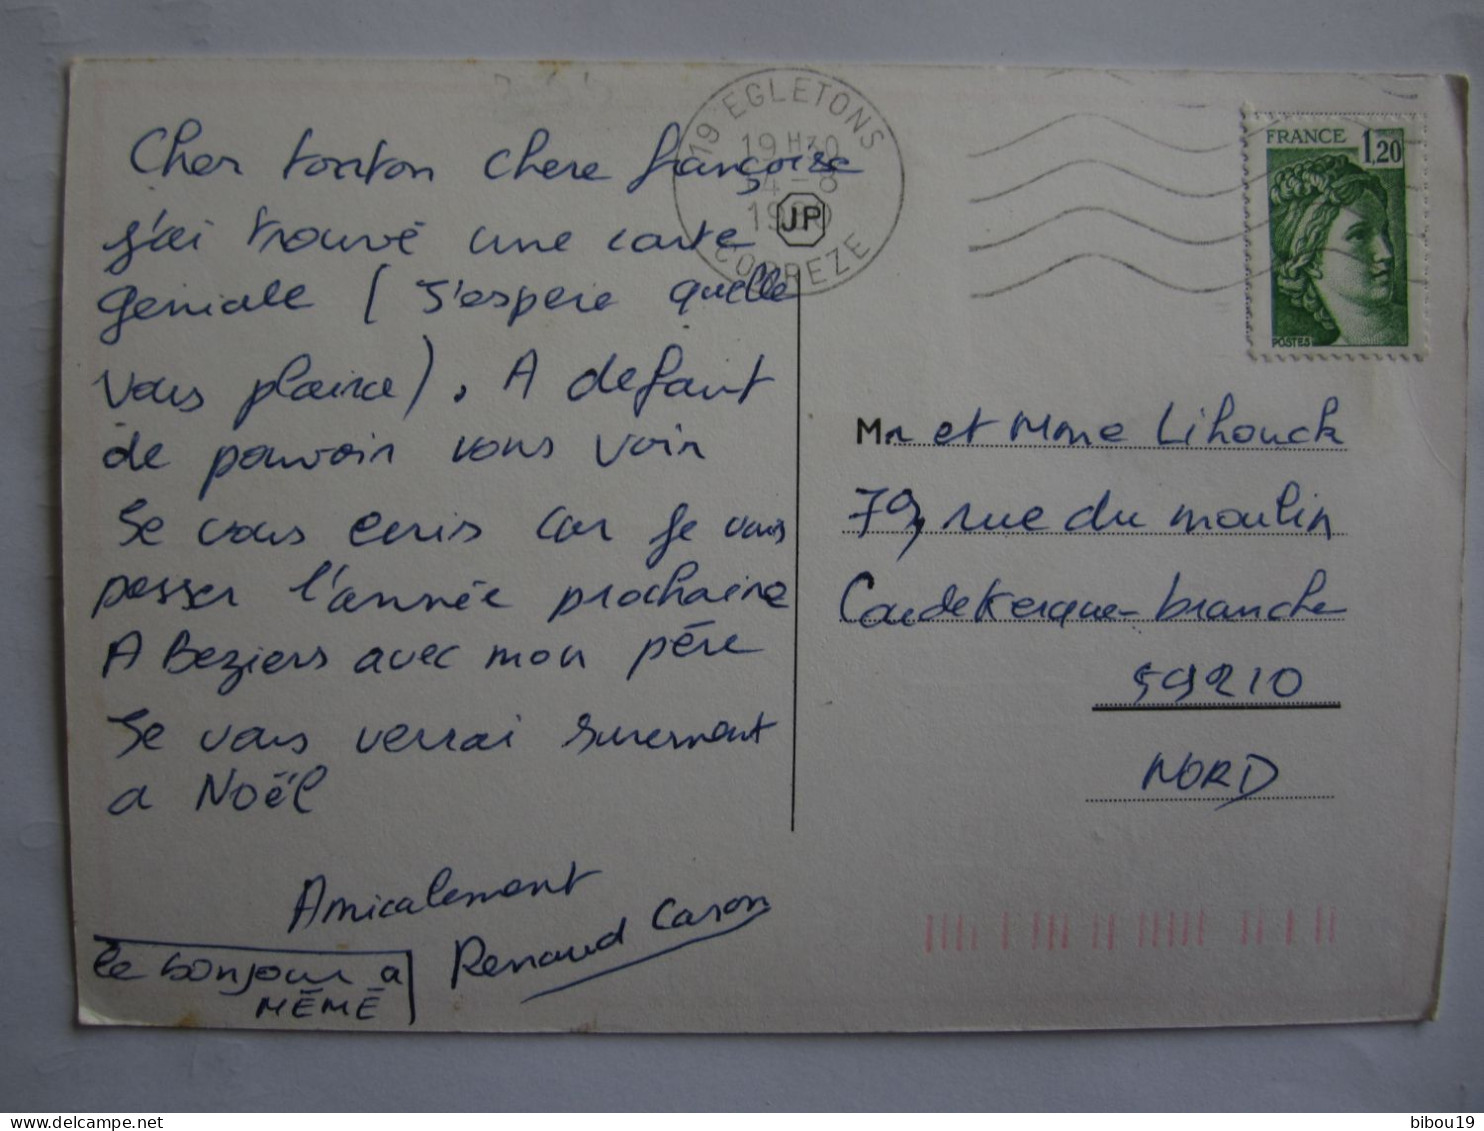 Cher tonton chere françoise
j'ai trouvé une carte
geniale ( J'espere quelle
vous plaira). A defaut
de pouvoir vous voir
Je vous ecris car je vais
passer l'année prochaine
A Beziers avec mon père
Je vous verrai surement
a Noël
Amicalement
Renaud Caron
le bonjour a
MÉMÉ
19 EGLETONS
19 H30
4 - 8
JP
CORREZE
FRANCE
1,20
POSTES
Mr et Mme Lihouck
79, rue du moulin
Coudekerque-branche
59210
NORD
bibou19